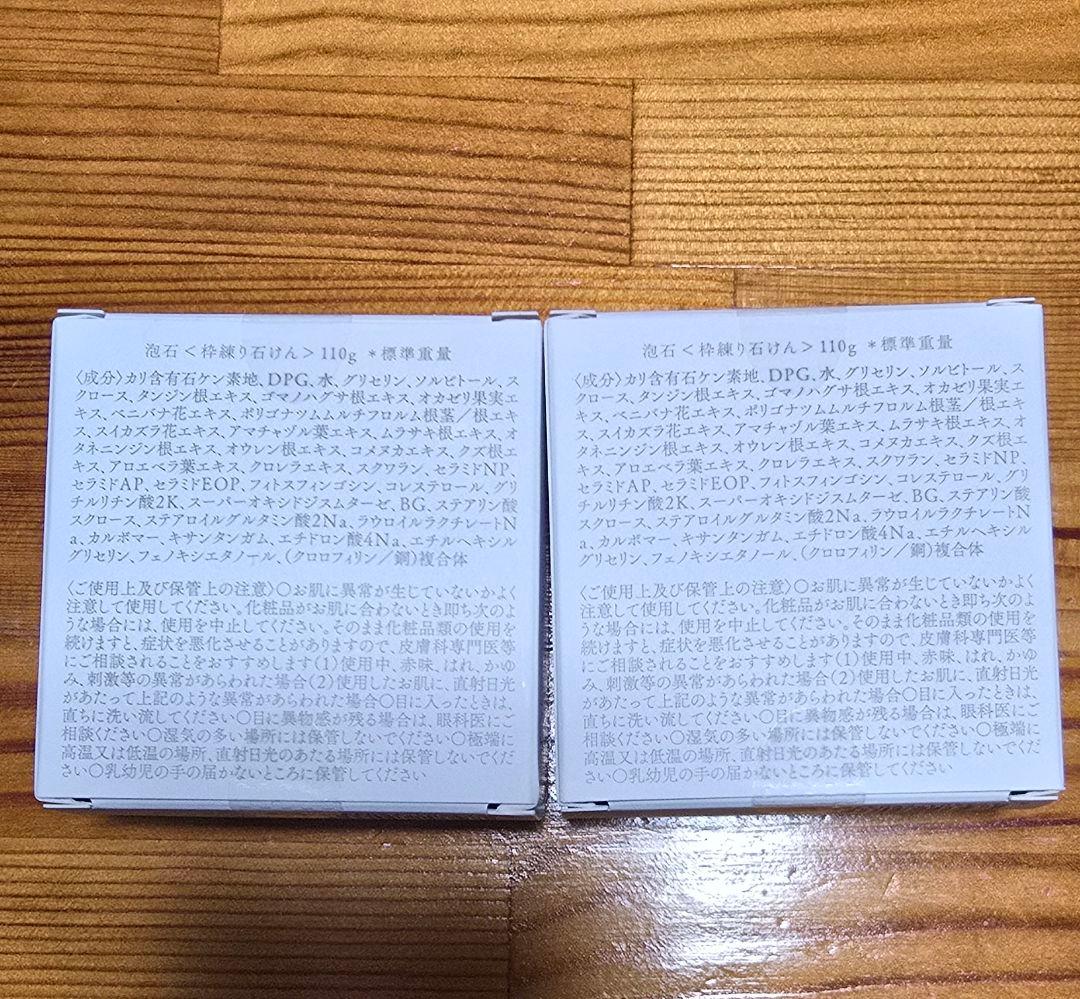 泡石<枠練り石けん>110g *標準重量
〈成分〉カリ含有石ケン素地、DPG、水、グリセリン、ソルビトール、ス
クロース、タンジン根エキス、ゴマノハグサ根エキス、オカゼリ果実エ
キス、ベニバナ花エキス、ポリゴナツムムルチフロルム根茎/根エキ
ス、スイカズラ花エキス、アマチャヅル葉エキス、ムラサキ根エキス、オ
タネニンジン根エキス、オウレン根エキス、コメヌカエキス、クズ根エ
キス、アロエベラ葉エキス、クロレラエキス、スクワラン、セラミドNP、
セラミドAP、セラミドEOP、フィトスフィンゴシン、コレステロール、グリ
チルリチン酸2K、スーパーオキシドジスムターゼ、BG、ステアリン酸
スクロース、ステアロイルグルタミン酸2Na、ラウロイルラクチレートN
a、カルボマー、キサンタンガム、エチドロン酸4Na、エチルヘキシル
グリセリン、フェノキシエタノール、(クロロフィリン/銅)複合体
〈ご使用上及び保管上の注意〉〇お肌に異常が生じていないかよく
注意して使用してください。化粧品がお肌に合わないとき即ち次のよ
うな場合には、使用を中止してください。そのまま化粧品類の使用を
続けますと、症状を悪化させることがありますので、皮膚科専門医等
にご相談されることをおすすめします(1)使用中、赤味、はれ、かゆ
み、刺激等の異常があらわれた場合(2)使用したお肌に、直射日光
があたって上記のような異常があらわれた場合〇目に入ったときは、
直ちに洗い流してください〇目に異物感が残る場合は、眼科医にご
相談ください〇湿気の多い場所には保管しないでください〇極端に
高温又は低温の場所、直射日光のあたる場所には保管しないでくだ
さい〇乳幼児の手の届かないところに保管してください
泡石<枠練り石けん>110g *標準重量
〈成分〉カリ含有石ケン素地、DPG、水、グリセリン、ソルビトール、ス
クロース、タンジン根エキス、ゴマノハグサ根エキス、オカゼリ果実エ
キス、ベニバナ花エキス、ポリゴナツムムルチフロルム根茎/根エキ
ス、スイカズラ花エキス、アマチャヅル葉エキス、ムラサキ根エキス、オ
タネニンジン根エキス、オウレン根エキス、コメヌカエキス、クズ根エ
キス、アロエベラ葉エキス、クロレラエキス、スクワラン、セラミドNP、
セラミドAP、セラミドEOP、フィトスフィンゴシン、コレステロール、グリ
チルリチン酸2K、スーパーオキシドジスムターゼ、BG、ステアリン酸
スクロース、ステアロイルグルタミン酸2Na、ラウロイルラクチレートN
a、カルボマー、キサンタンガム、エチドロン酸4Na、エチルヘキシル
グリセリン、フェノキシエタノール、(クロロフィリン/銅)複合体
〈ご使用上及び保管上の注意〉〇お肌に異常が生じていないかよく
注意して使用してください。化粧品がお肌に合わないとき即ち次のよ
うな場合には、使用を中止してください。そのまま化粧品類の使用を
続けますと、症状を悪化させることがありますので、皮膚科専門医等
にご相談されることをおすすめします(1)使用中、赤味、はれ、かゆ
み、刺激等の異常があらわれた場合(2)使用したお肌に、直射日光
があたって上記のような異常があらわれた場合〇目に入ったときは、
直ちに洗い流してください〇目に異物感が残る場合は、眼科医にご
相談ください〇湿気の多い場所には保管しないでください〇極端に
高温又は低温の場所、直射日光のあたる場所には保管しないでくだ
さい〇乳幼児の手の届かないところに保管してください